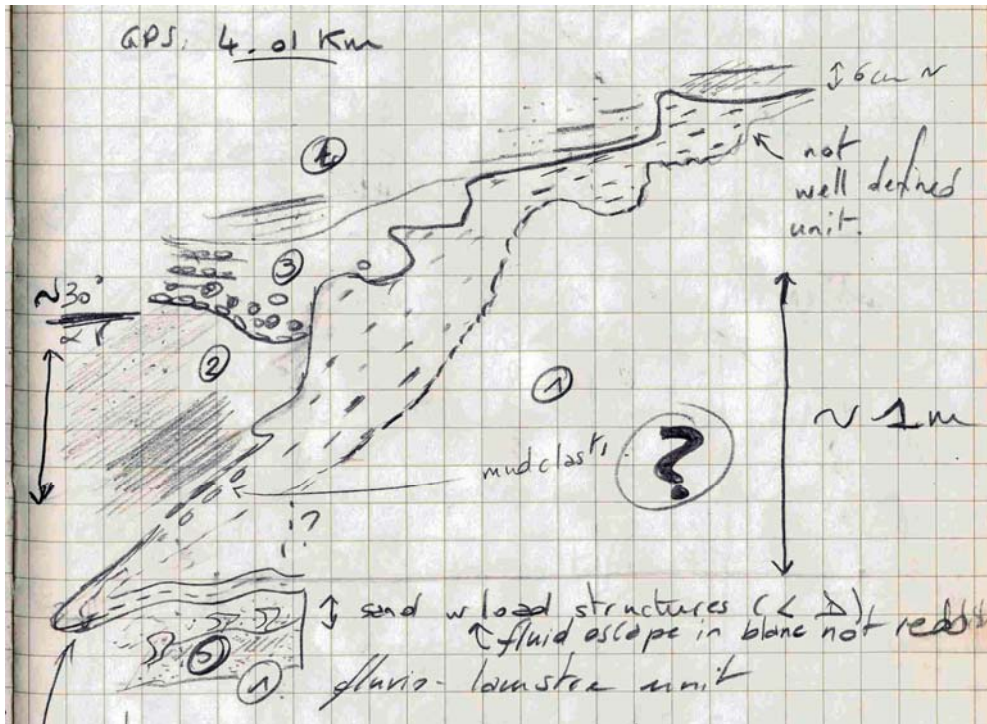 GPS: 4.01 Km
↕ 6 cm ~
④
not
well defined
unit.
③
~30°
②
①
~ 1 m
mudclasts
?
?
↕ sand w load structures (<
fluid escape in blane not
⑤
① fluvio-lacustre unit